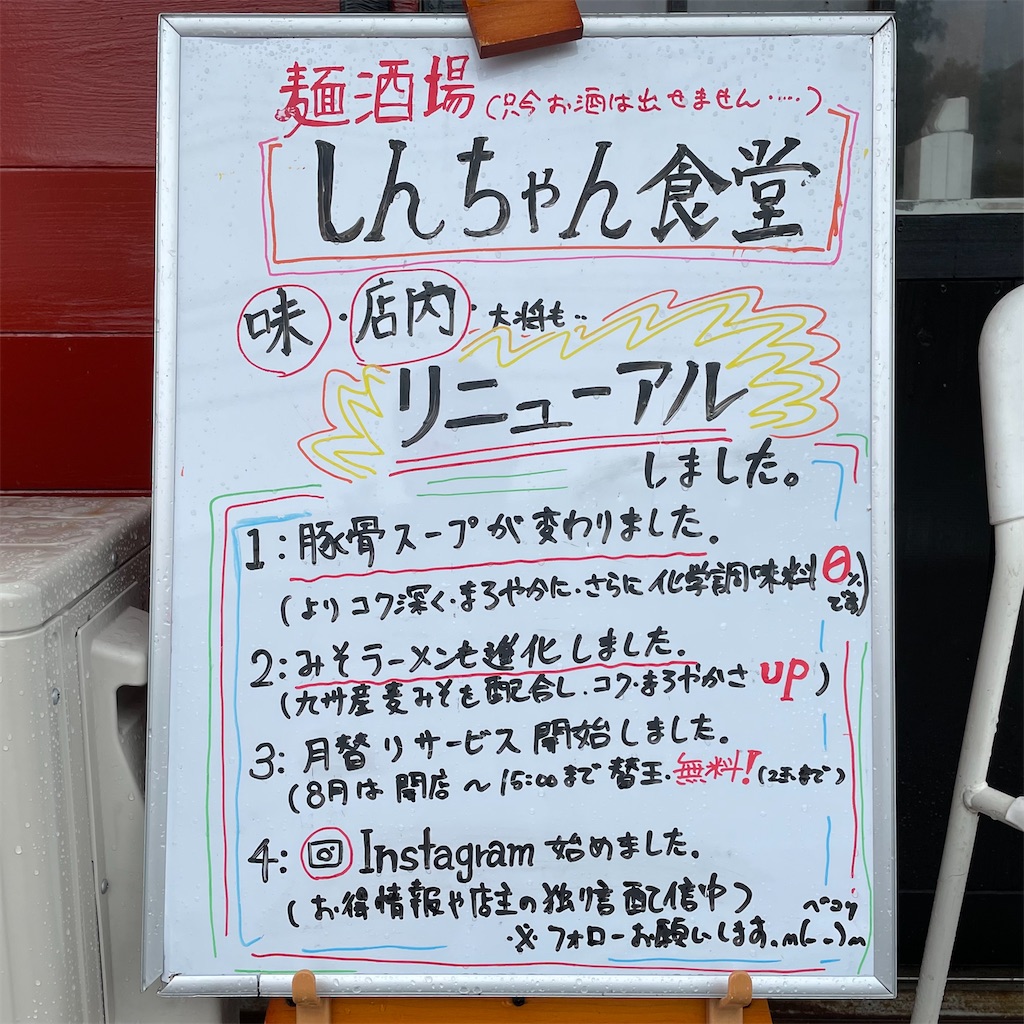 麺酒場(只今お酒は出せません……)
しんちゃん食堂
味・店内・大将も‥
リニューアル
しました。
1:豚骨スープが変わりました。
(よりコク深く・まろやかに・さらに化学調味料0%です)
2:みそラーメンも進化しました。
(九州産麦みそを配合し、コク・まろやかさUP)
3:月替りサービス開始しました。
(8月は開店〜15:00まで替玉・無料!(2玉まで)
4:Instagram始めました。
(お得情報や店主の独り言配信中)
ペコリ
※フォローお願いします。m(_ _)m